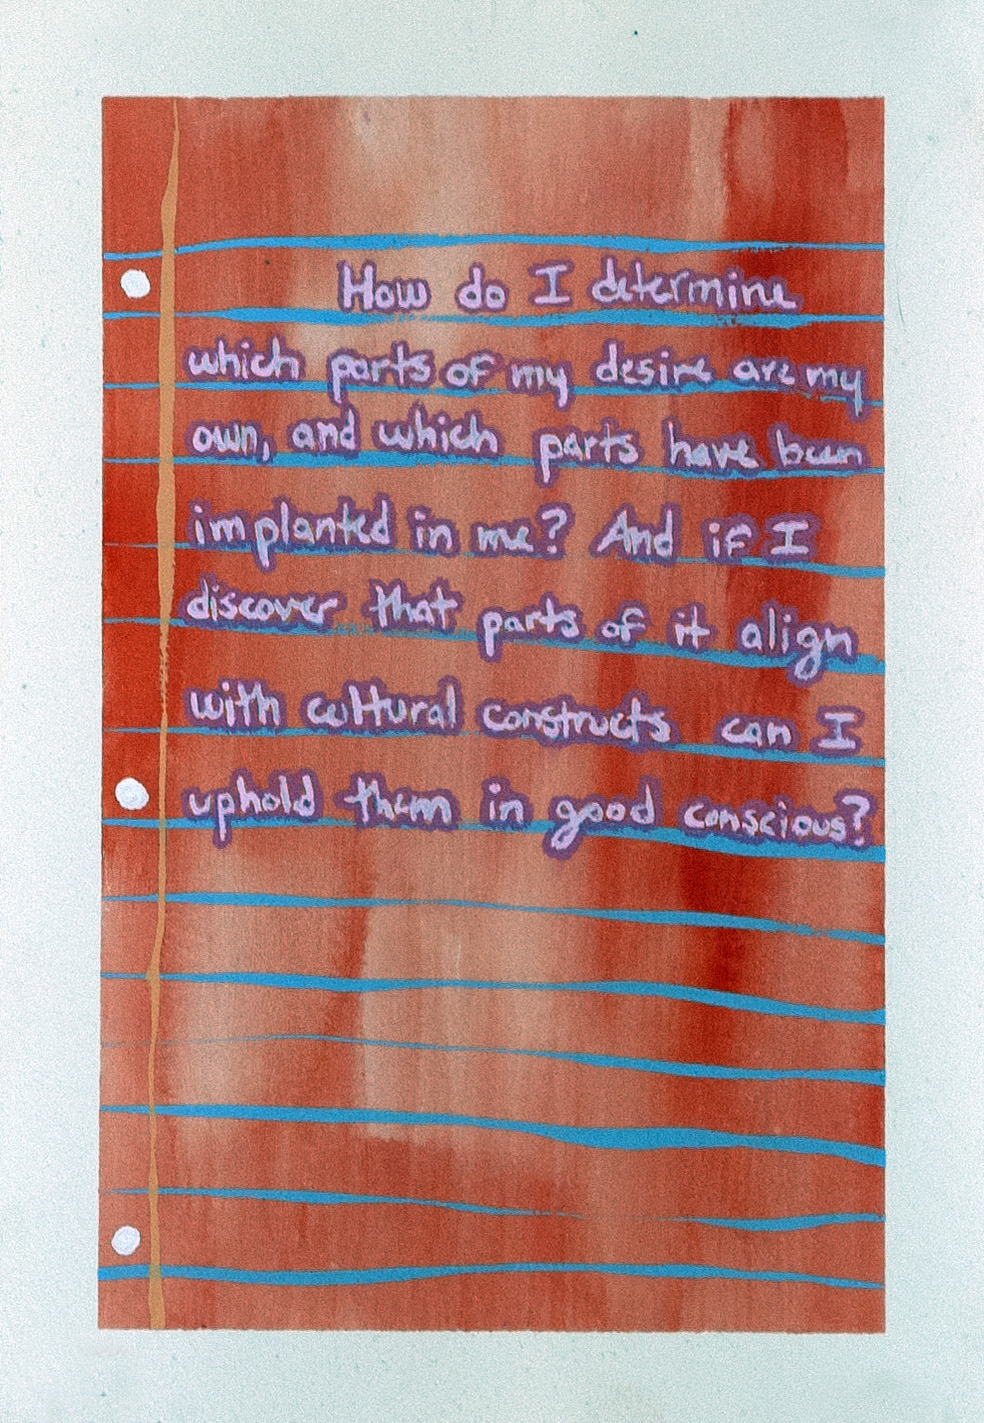 How do I determine
which parts of my desire are my
own, and which parts have been
implanted in me? And if I
discover that parts of it align
with cultural constructs can I
uphold them in good conscious?